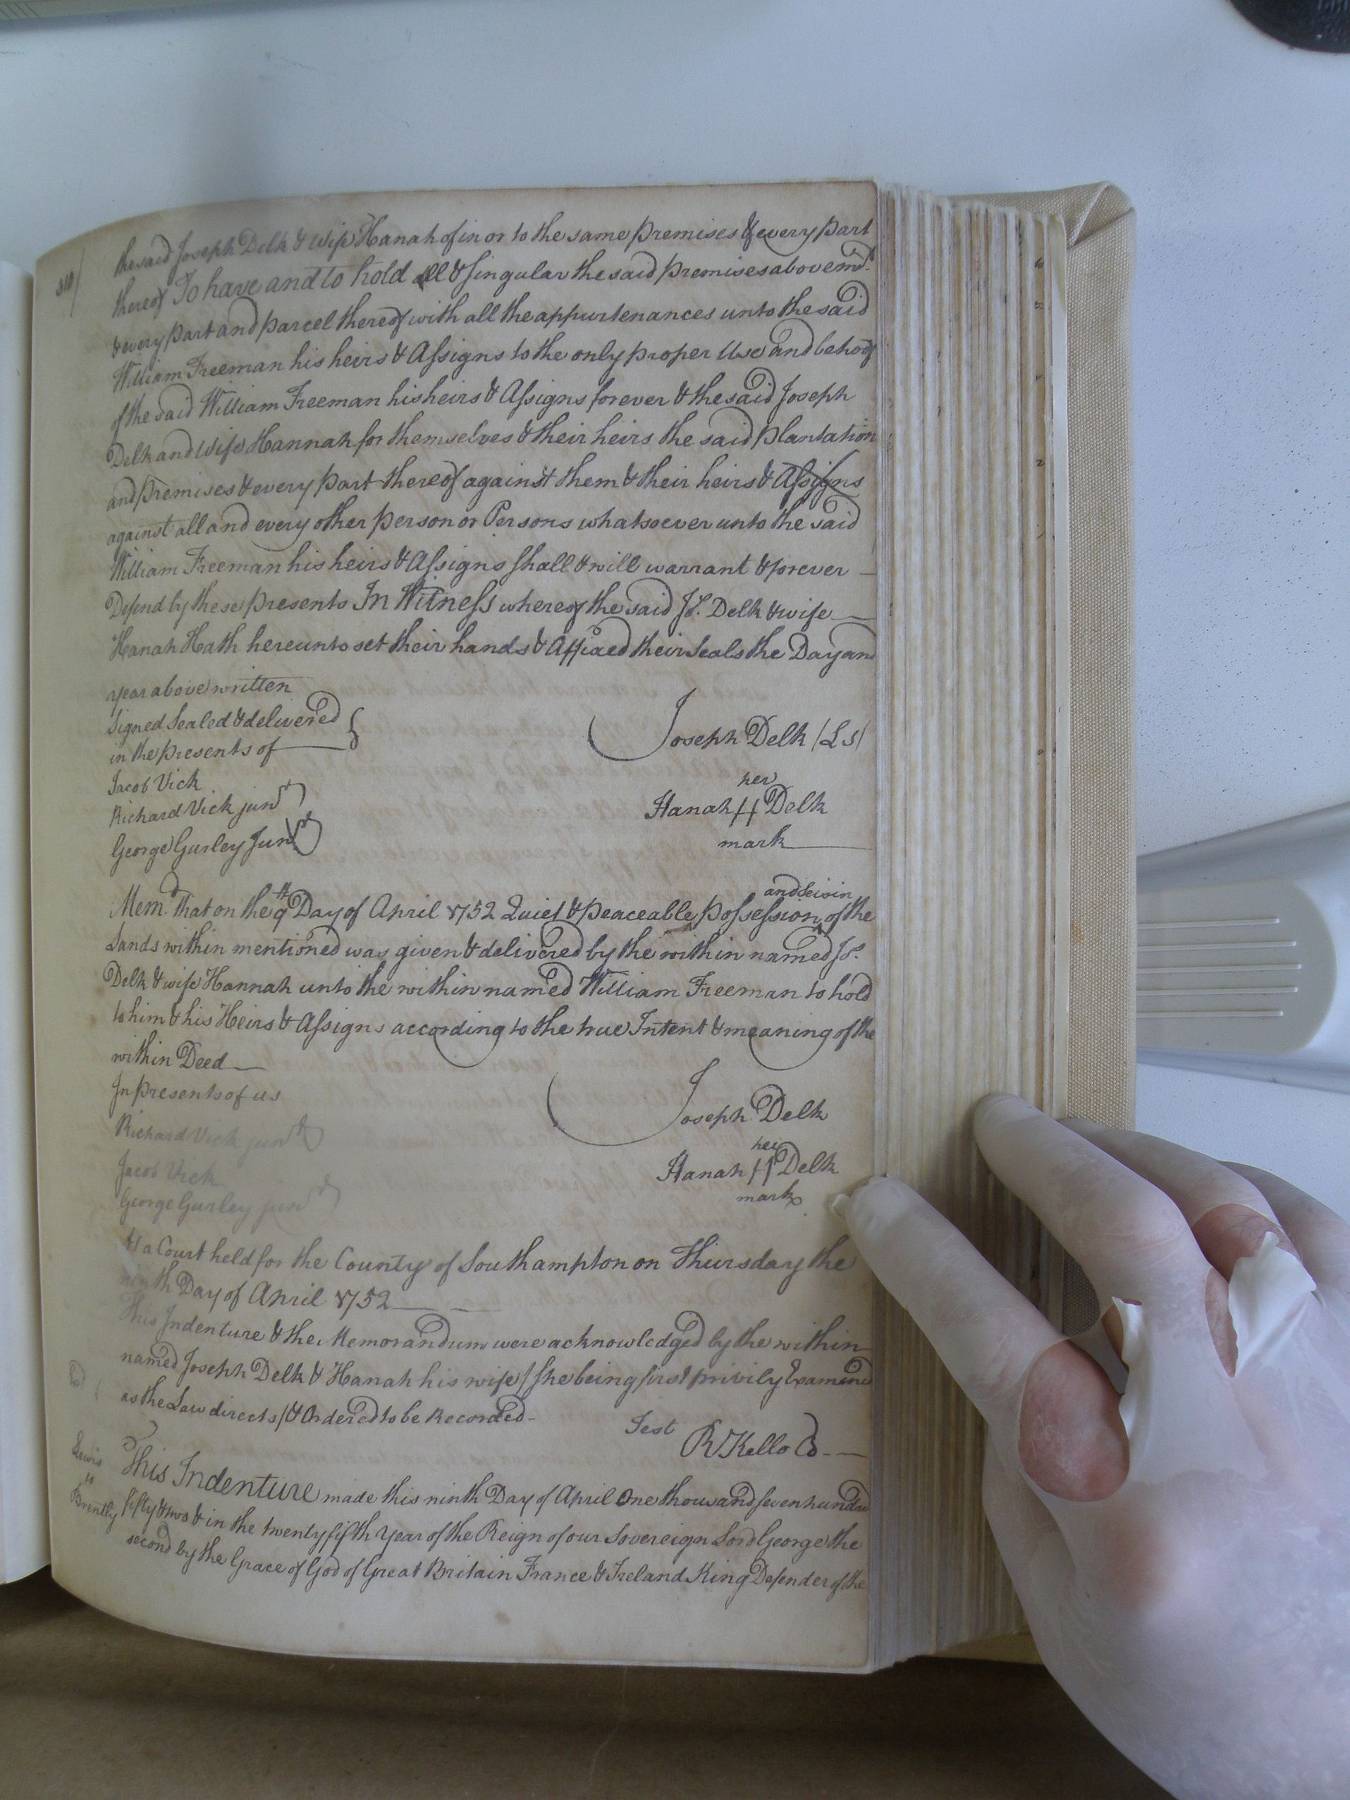 the said Joseph Delk & Wife Hanah of in or to the same premises & every part
thereof To have and to hold all & singular the said premises above md.
& every part and parcel thereof with all the appurtenances unto the said
William Freeman his heirs & Assigns to the only proper Use and behoof
of the said William Freeman his heirs & Assigns forever & the said Joseph
Delk and Wife Hannah for themselves & their heirs the said plantation
and premises & every part thereof against them & their heirs & Assigns
against all and every other person or Persons whatsoever unto the said
William Freeman his heirs & Assigns shall & will warrant & forever
Defend by these presents In Witness whereof the said Js. Delk & wife
Hanah Hath hereunto set their hands & Affixed their Seals the Day and
year above written
Signed Sealed & delivered
in the presents of
Joseph Delk (LS)
Jacob Vick
Richard Vick junr
George Gurley Junr
her
Hanah H Delk
mark
Memd. that on the 9th Day of April 1752 Quiet & peaceable possession and Seisin of the
Lands within mentioned was given & delivered by the within named Js.
Delk & wife Hannah unto the within named William Freeman to hold
to him & his Heirs & Assigns according to the true Intent & meaning of the
within Deed
In presents of us
Joseph Delk
Richard Vick junr
Jacob Vick
George Gurley junr
her
Hanah H Delk
mark
At a Court held for the County of Southampton on Thursday the
ninth Day of April 1752
This Indenture & the Memorandum were acknowledged by the within
named Joseph Delk & Hanah his wife (she being first privily Examined
as the Law directs) & Ordered to be Recorded
Test
R Kello
Lewis
to
Brantly
This Indenture made this ninth Day of April One thousand seven hundred
fifty & two & in the twenty fifth Year of the Reign of our Sovereign Lord George the
second by the Grace of God of Great Britain France & Ireland King Defender of the